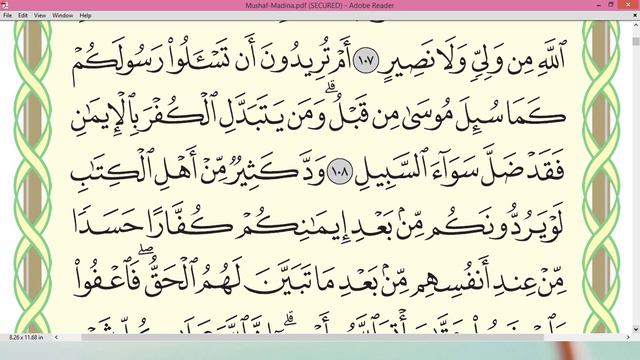 Mushaf-Madina.pdf (SECURED) - Adobe Reader
File Edit View Window Help
ٱللَّهِ مِن وَلِىٍّ وَلَا نَصِيرٍ ١٠٧ أَمْ تُرِيدُونَ أَن تَسْـَٔلُوا۟ رَسُولَكُمْ
كَمَا سُئِلَ مُوسَىٰ مِن قَبْلُ ۗ وَمَن يَتَبَدَّلِ ٱلْكُفْرَ بِٱلْإِيمَٰنِ
فَقَدْ ضَلَّ سَوَآءَ ٱلسَّبِيلِ ١٠٨ وَدَّ كَثِيرٌ مِّنْ أَهْلِ ٱلْكِتَٰبِ
لَوْ يَرُدُّونَكُم مِّنۢ بَعْدِ إِيمَٰنِكُمْ كُفَّارًا حَسَدًا
مِّنْ عِندِ أَنفُسِهِم مِّنۢ بَعْدِ مَا تَبَيَّنَ لَهُمُ ٱلْحَقُّ ۖ فَٱعْفُوا۟
8.26 x 11.68 in